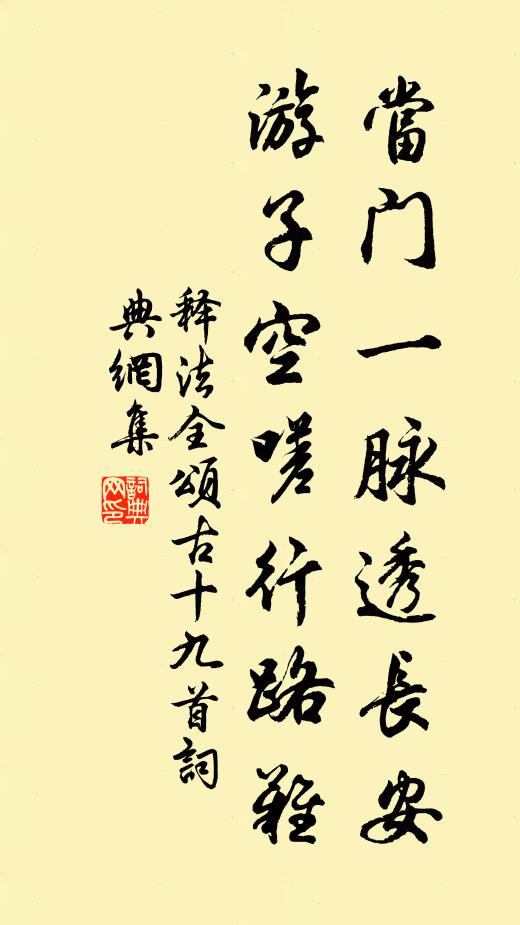 當门一脉透長安
游子空嗟行路難
释法全頌古十九首詞
典網集
詞典网印